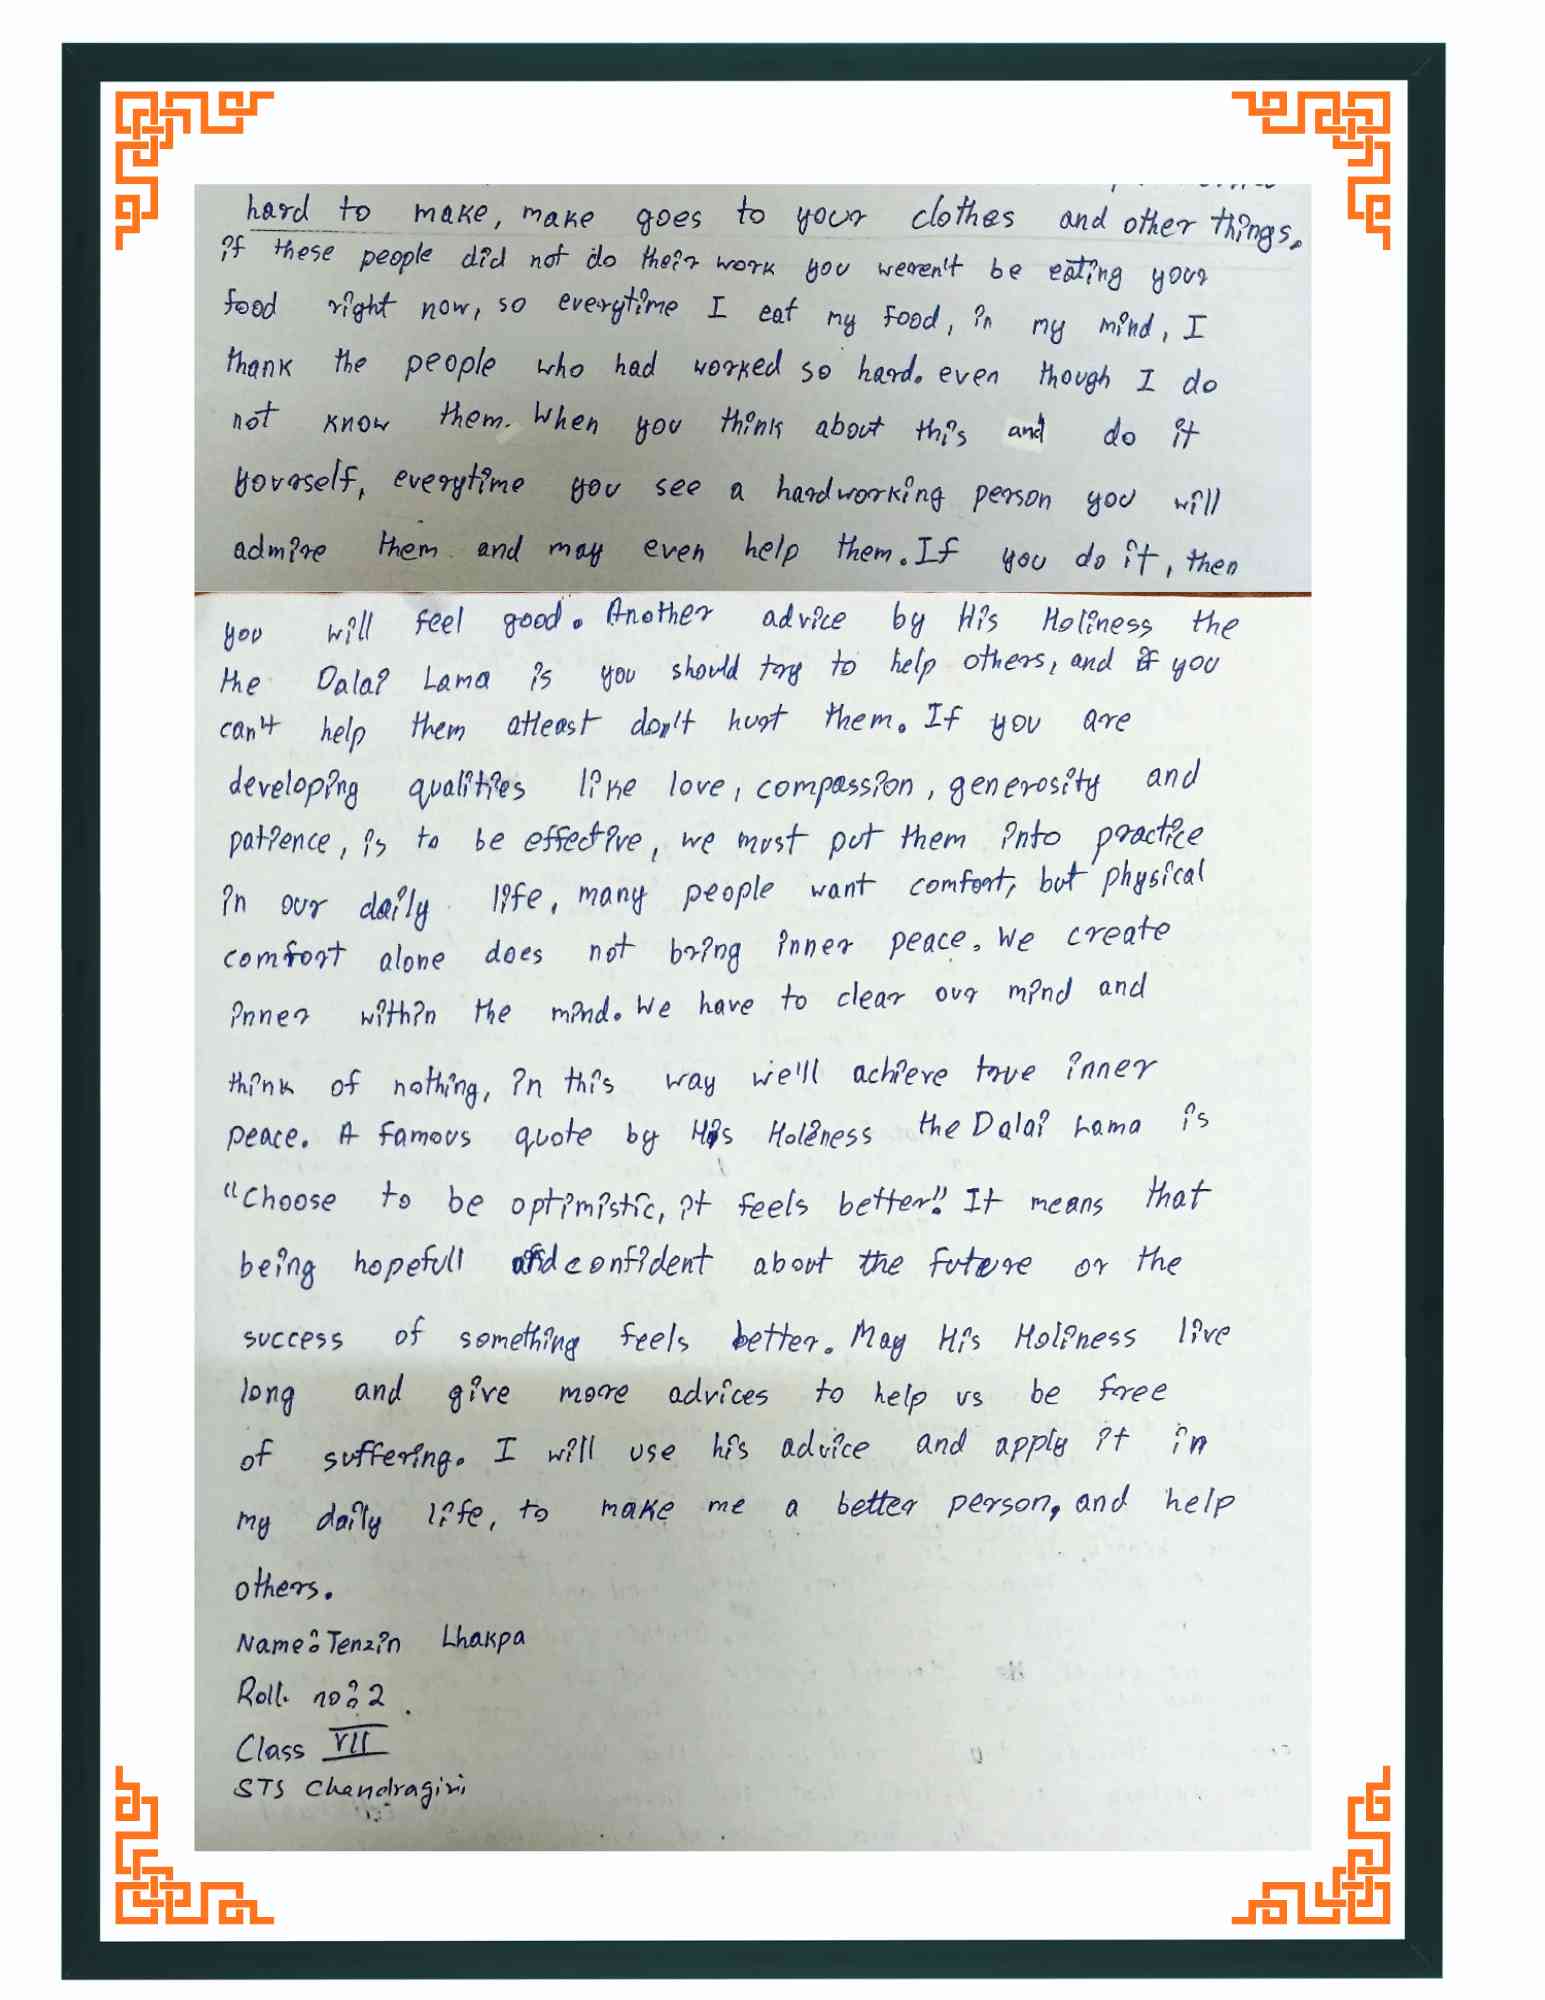 hard to make, make goes to your clothes and other things.
if these people did not do their work you weren't be eating your
food right now, so everytime I eat my food, in my mind, I
thank the people who had worked so hard. even though I do
not know them. When you think about this and do it
yourself, everytime you see a hardworking person you will
admire them and may even help them. If you do it, then
you will feel good. Another advice by His Holiness the
the Dalai Lama is you should try to help others, and if you
can't help them atleast don't hurt them. If you are
developing qualities like love, compassion, generosity and
patience, is to be effective, we must put them into practice
in our daily life, many people want comfort, but physical
comfort alone does not bring inner peace. We create
inner within the mind. We have to clear our mind and
think of nothing, in this way we'll achieve true inner
peace. A famous quote by His Holiness the Dalai Lama is
"Choose to be optimistic, it feels better". It means that
being hopefull and confident about the future or the
success of something feels better. May His Holiness live
long and give more advices to help us be free
of suffering. I will use his advice and apply it in
my daily life, to make me a better person, and help
others.
Name: Tenzin Lhakpa
Roll. no: 2
Class VII
STS Chandragiri